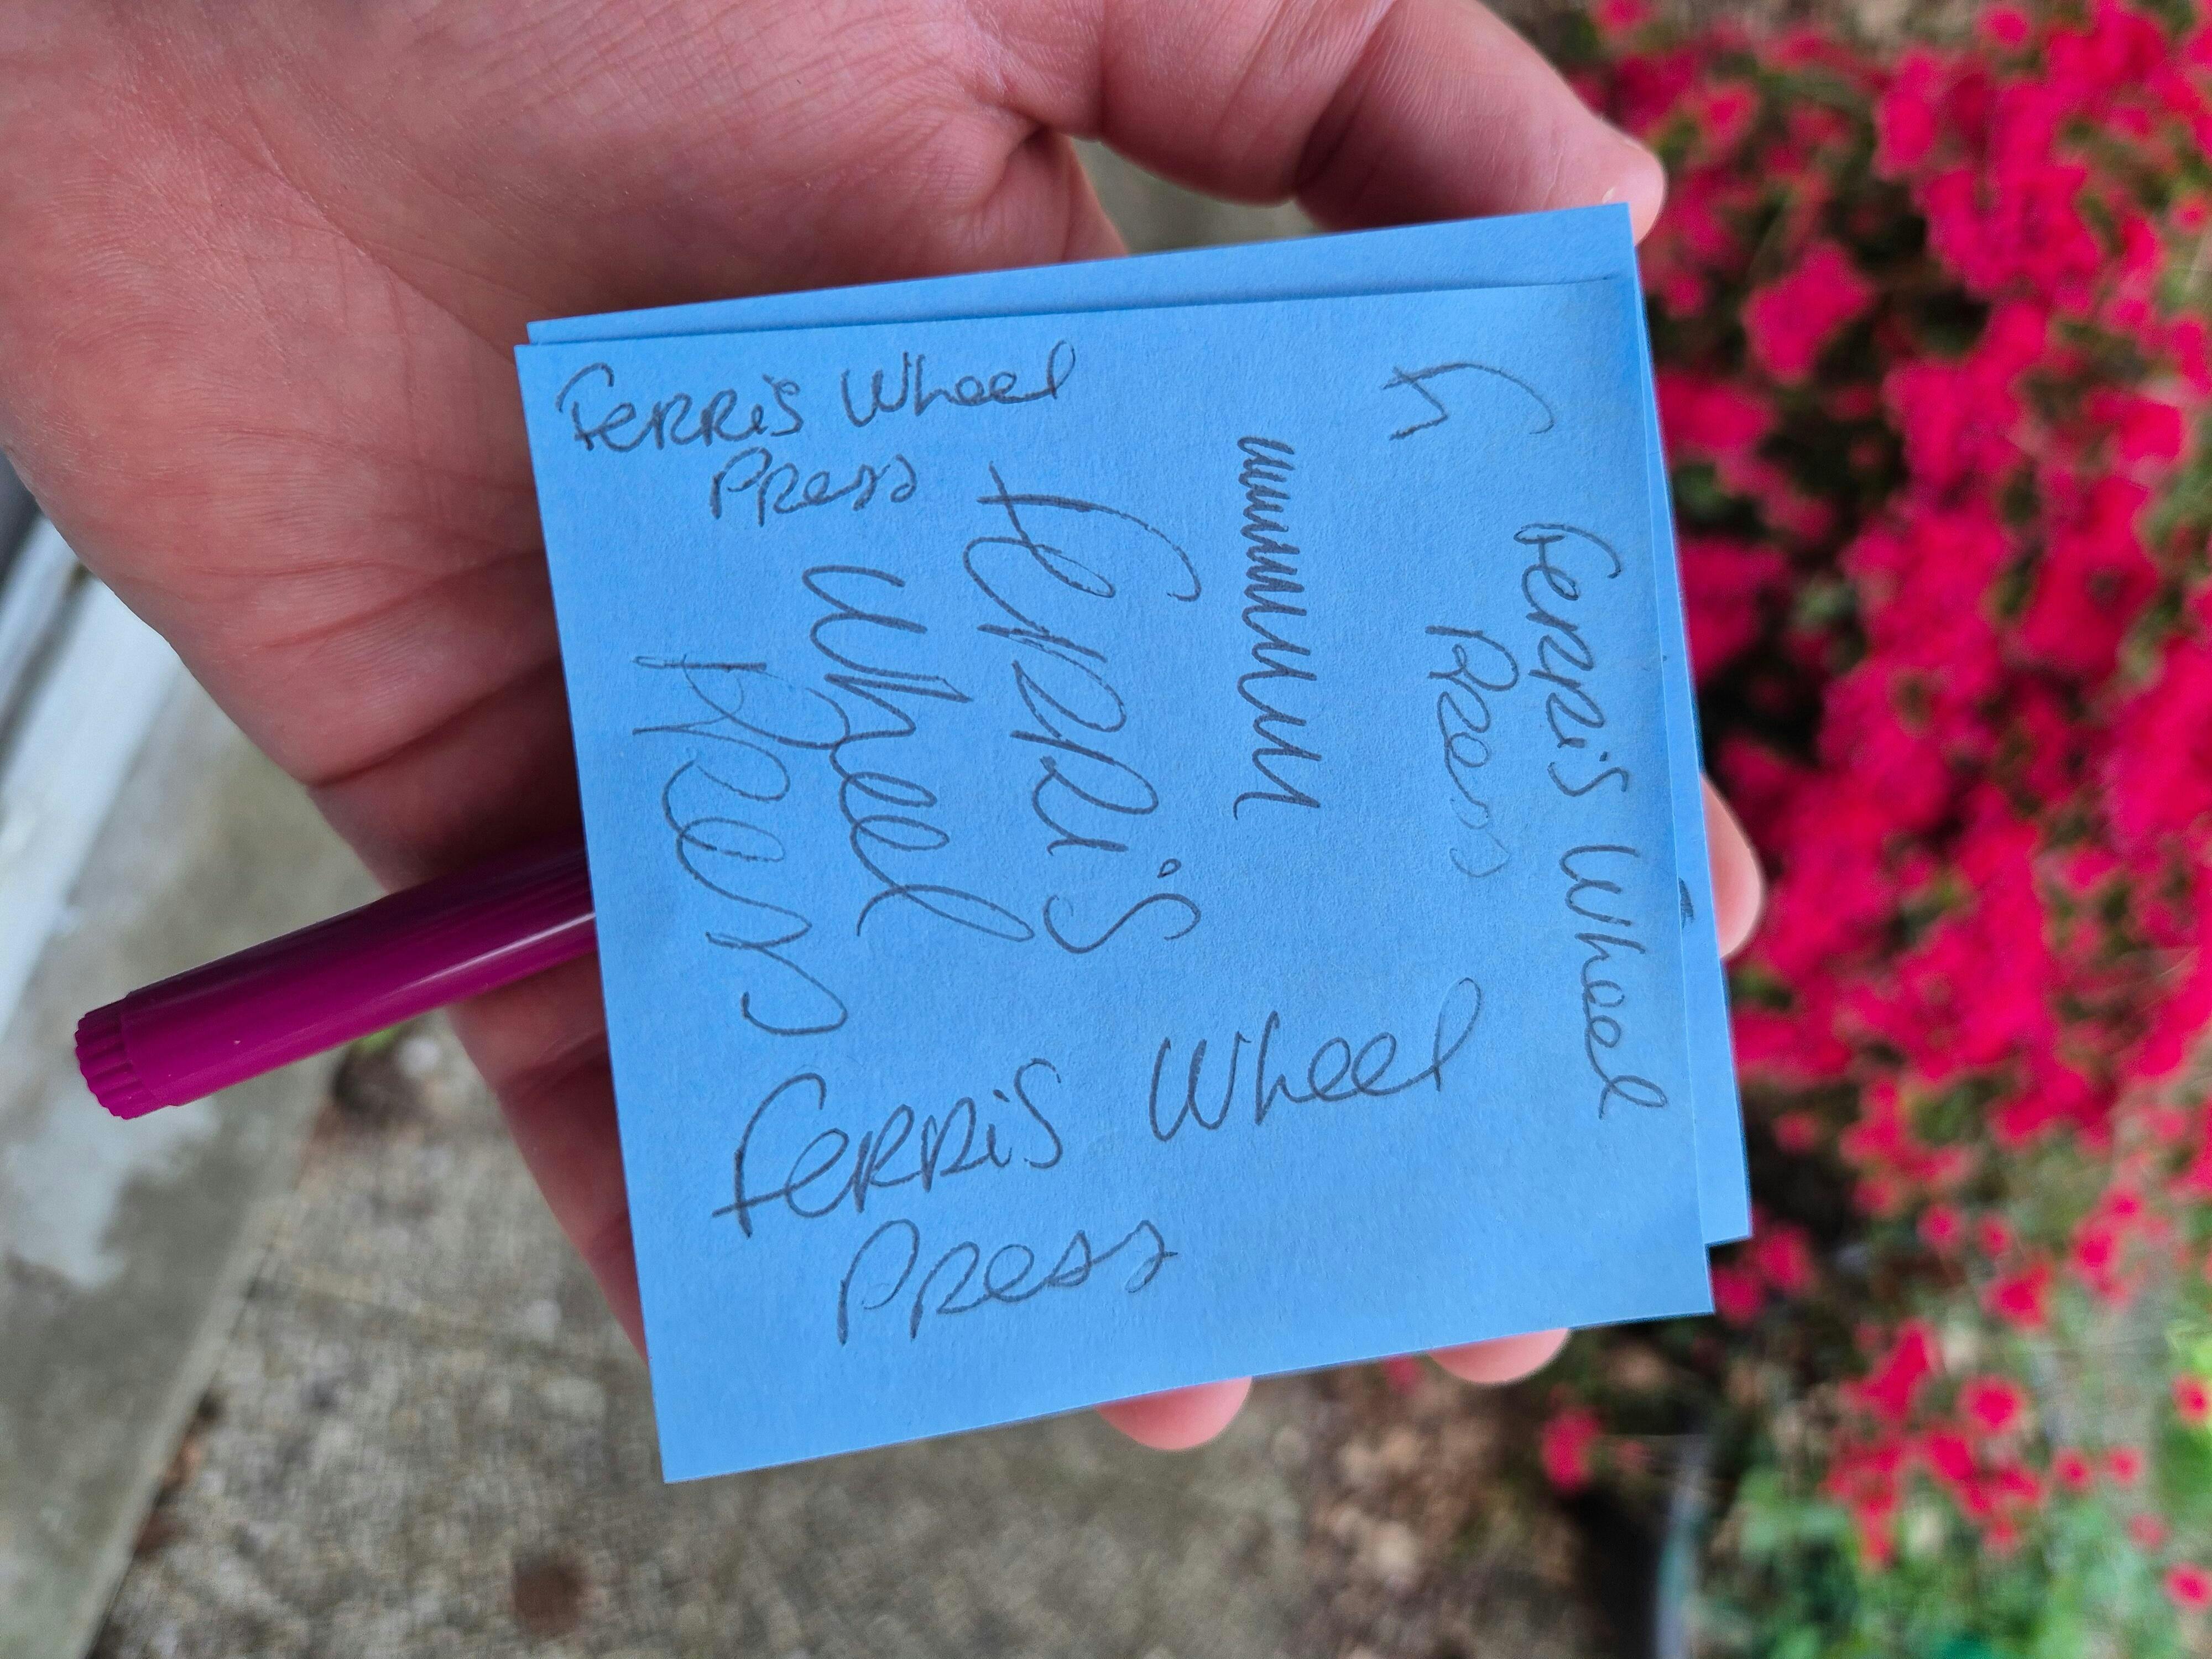 Ferris Wheel
Press
Ferris Wheel
Press
Ferris
Wheel
Press
Ferris Wheel
Press